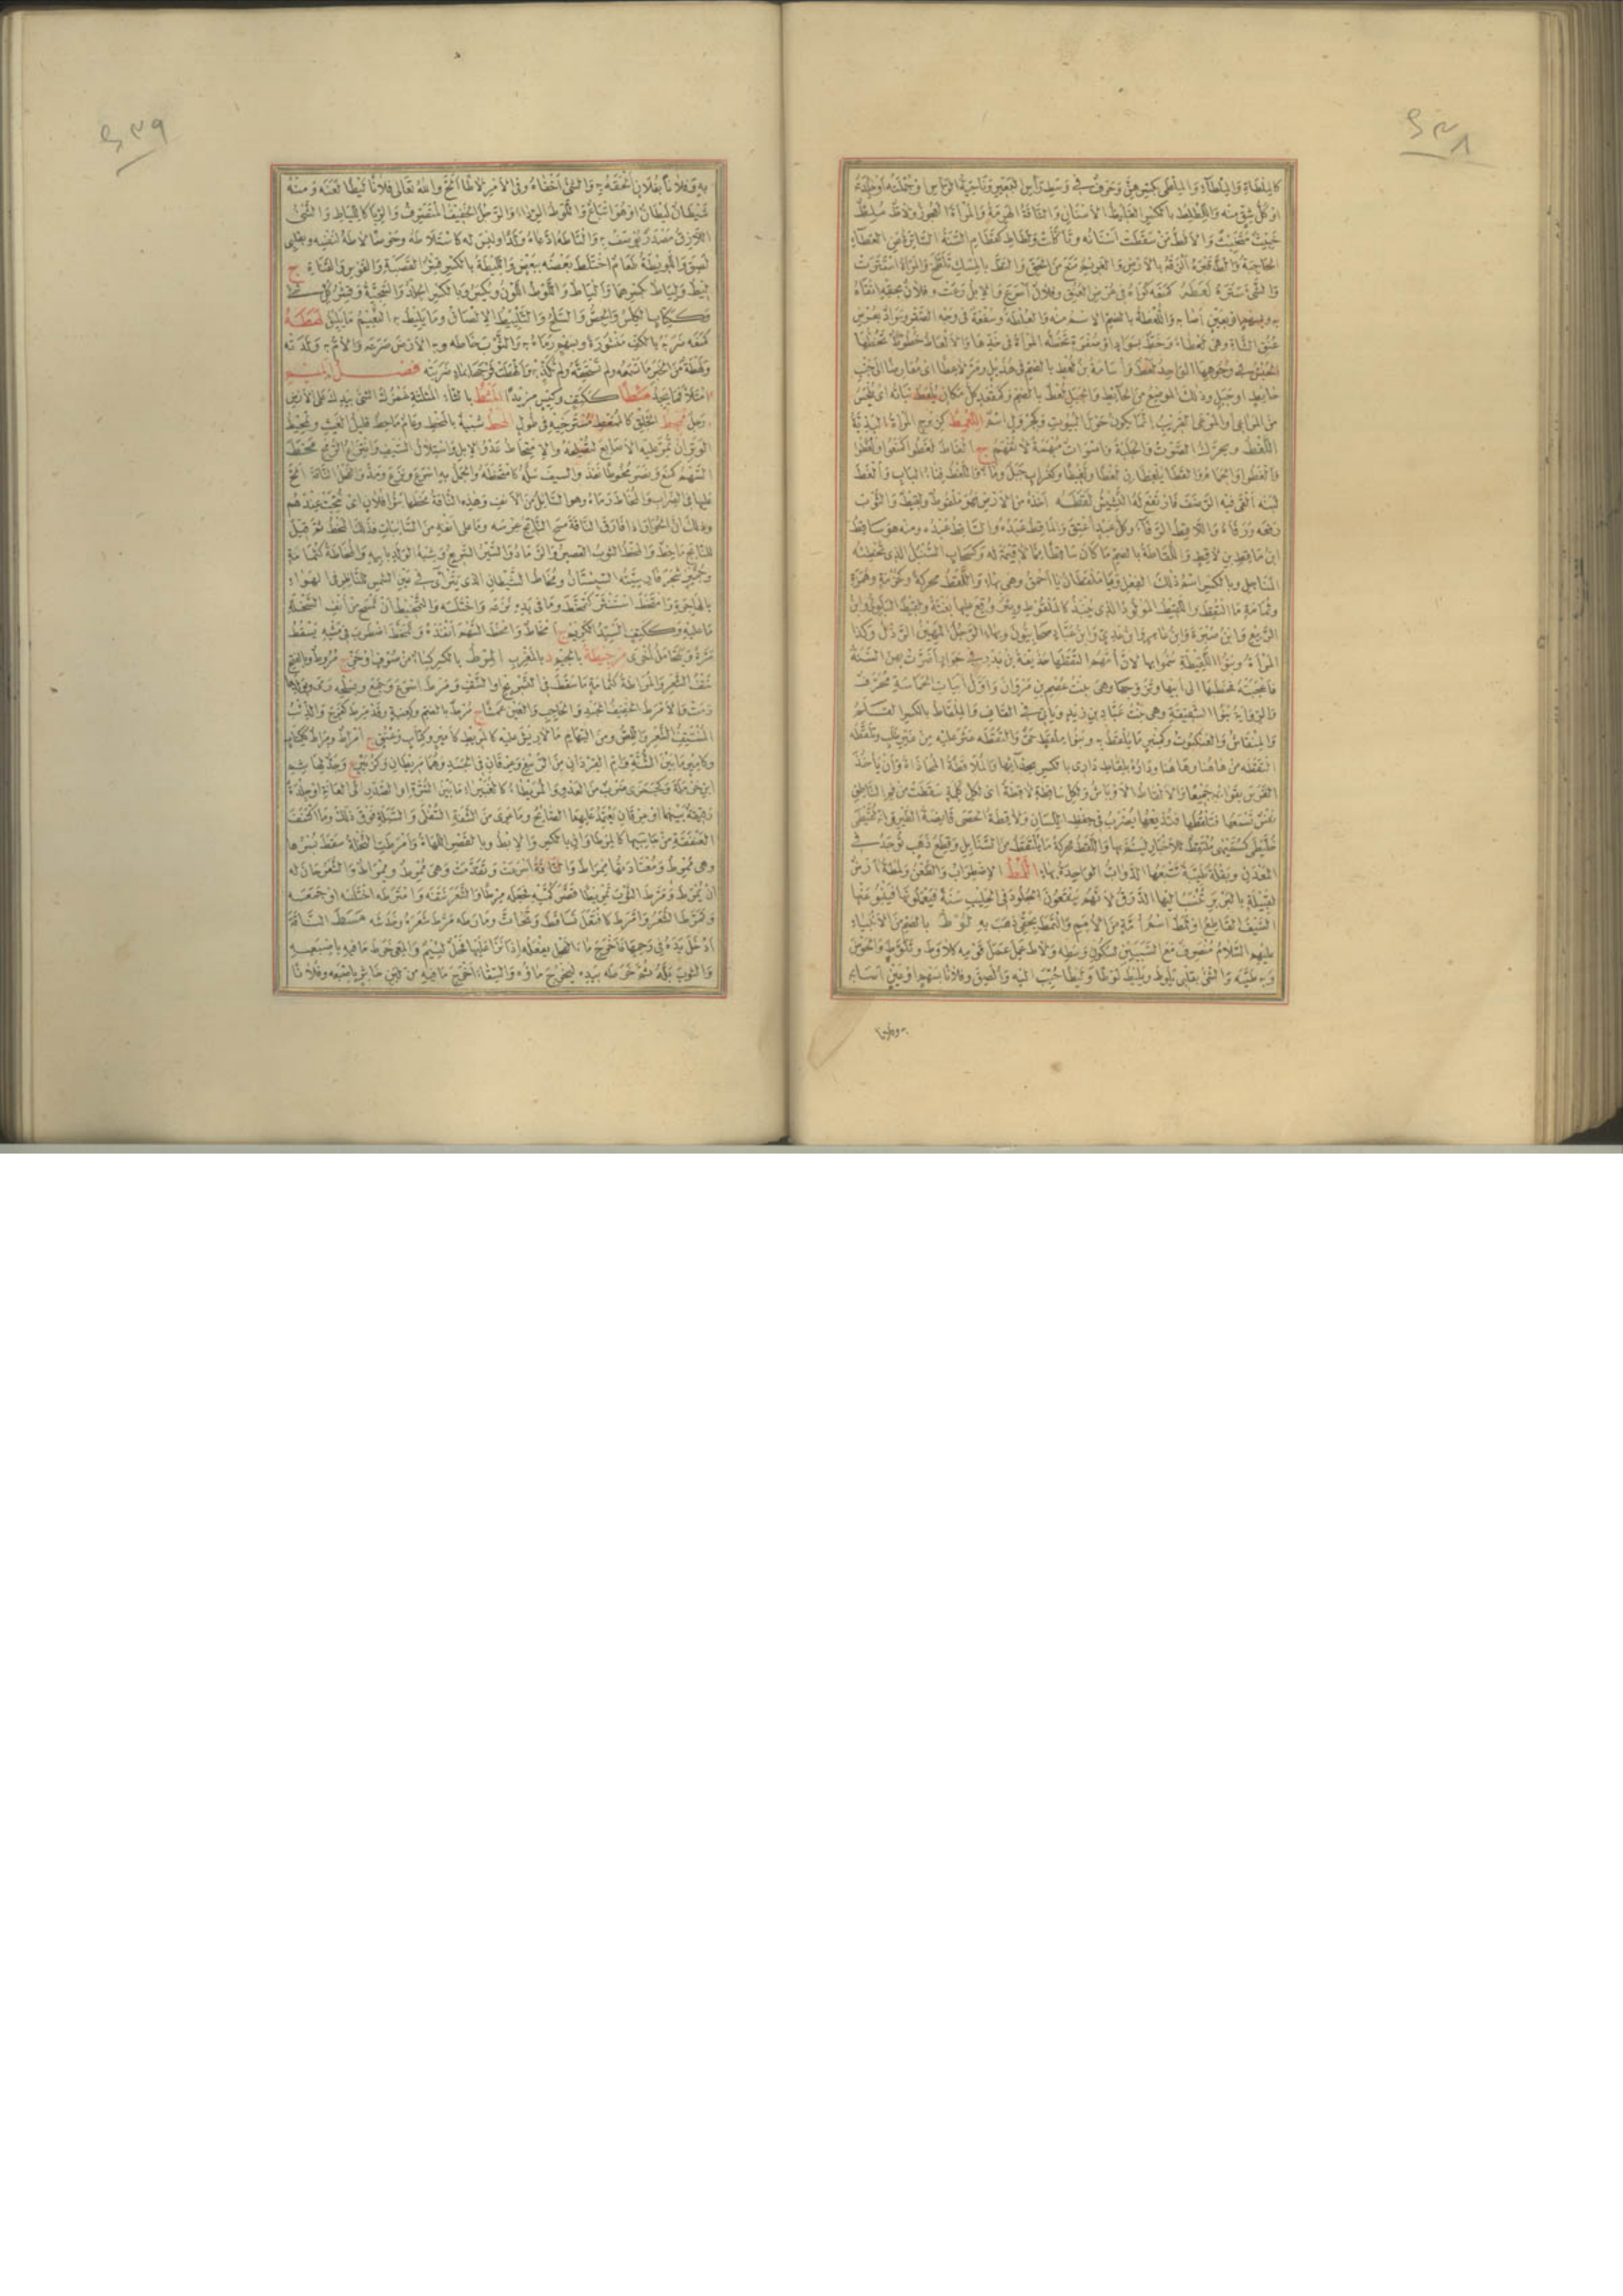 كالملطاة والملطاء والملطى بكسرهن وحرف في وسط رأس البعير وناحية الرأس او جملته او جلدة
او كل شق منه واللطلط بالكسر الغليظ الاسنان والناقة الهرمة والمرأة العجوز ولاط ملط
خبيث مخبث والالط من سقطت اسنانه وتأكلت ولطاط كقطام السنة الساترة عن العطاء
الحاجبة
والشيء ستره لعطه كمنعه كواه في عرض العنق وفلان اسرع والابل رعت وفلان بحقه اتقاه
به وبسهم او بعين اصابه واللعطة بالضم الاسم منه والعلطة وسفعة في وجه الصقر وسواد بعرض
عنق الشاة وهي لعطاء وخط بسواد او صفرة تخطه المرأة في خدها والالعاط خطوط تخطها
الحبش في وجوهها الواحد لعط واسامة بن لعط بالضم في هذيل ومر لاعطا اي معارضا الى جنب
حائط او جبل وذلك الموضع من الحائط والجبل لعط بالضم وكمقعد كل مكان يلعط نباته اي يلحس
من المراعي والمرعى القريب انما يكون حول البيوت
اللغط ويحرك الصوت والجلبة واصوات مبهمة لا تفهم ج الغاط لغطوا كمنعوا ولغطوا
والغطوا والحمام والقطا يلغطان لغطا ولغيطا وكغراب جبل وماء واللغط فناء الباب والغط
لبنه القى فيه الرضف فارتفع له النشيش لقطه اخذه من الارض فهو ملقوط ولقيط والثوب
رفعه ورفاه واللاقط الرفاء وكل عبد اعتق والماقط عبده والساقط عبده ومنه هو ساقط
ابن ماقط بن لاقط واللقاطة بالضم ما كان ساقطا مما لا قيمة له وكسحاب السنبل الذي تخطئه
المناجل وبالكسر اسم ذلك الفعل ويا ملقطان يا احمق وهي بهاء واللقط محركة وكحزمة وهمزة
وثمامة ما التقط واللقيط المولود الذي ينبذ كالملقوط وبئر وقع عليها بغتة ولقيط البلوي وابن
الربيع وابن صبرة وابن عامر وابن عدي وابن عباد صحابيون وبهاء الرجل المهين الرذل وكذا
المرأة وبنو اللقيطة سموا بها لان امهم التقطها حذيفة بن بدر في جوار اضرت بهن السنة
فاعجبته فخطبها الى ابيها وتزوجها وهي بنت عصم بن مروان واول ابيات الحماسة محرف
والرواية بنو الشقيقة وهي بنت عباد بن زيد ويأتي في القاف والملقاط بالكسر القلم
والمنقاش والعنكبوت وكمنبر ما يلقط به وبنو ملقط حي والتقطه عثر عليه من غير طلب وتلقطه
التقطه من هاهنا وهاهنا وداره بلقاط داري بالكسر بحذائها والملاقطة المحاذاة وان يأخذ
الفرس بقوائمه جميعا والالقاط الاوباش ولكل ساقطة لاقطة اي لكل كلمة سقطت من فم الناطق
نفس تسمعها فتلقطها فتذيعها يضرب في حفظ اللسان ولاقطة الحصى قانصة الطير
خليطى كسميهى ملتقط للاخبار لينم بها واللقط محركة ما يلتقط من السنابل وقطع ذهب توجد في
المعدن وبقلة طيبة تتبعها الدواب الواحدة بهاء اللمط الاضطراب والطعن ولمطة ارض
لقبيلة بالبربر ينسب اليها الدرق لانهم ينقعون الجلود في الحليب سنة فيعملونها فينبو عنها
السيف القاطع او لمط اسم امة من الامم والتمط بحقي ذهب به لوط بالضم من الانبياء
عليهم السلام منصرف مع السببين لسكون وسطه ولاط عمل عمل قومه كلاوط وتلوط والحوض
وبه طينه والشيء بقلبي يلوط ويليط لوطا وليطا حبب اليه والصق وفلانا بسهم او بعين اصابه
به وفلانا
به وفلانا بفلان الحقه به والشيء اخفاه وفي الامر لاطا الح والله تعالى فلانا ليطا لعنه ومنه
شيطان ليطان او هو اتباع واللوط الرداء والرجل الخفيف المتصرف والربا كاللياط والشيء
اللازق مصدر يوصف به والتاطه ادعاه ولدا وليس له كاستلاطه وحوضا لاطه لنفسه وبقلبي
لصق واللويطة طعام اختلط بعضه ببعض والليطة بالكسر قشر القصبة والقوس والقناة ج
ليط ولياط كسرهما والياط واللوط اللون ويكسر وبالكسر الجلد والسجية وقشر كل شيء
وككتاب الكلس والجص والسلح والتلييط الالصاق وما يليط به النعيم ما يليق لهطه
كمنعه ضربه بالكف منشورة وبسهم رماه به والثوب خاطه وبه الارض صرعه والام به ولدته
ولهطة من الخبر ما تسمعه ولم تستحقه ولم تكذبه والهطت فرجها بماء ضربته فصل الميم
امتلأ فما يجد مئطا ككيف وكيس مزيدا المثط بالثاء المثلثة غمزك الشيء بيدك على الارض
رجل ممحط الخلق كالممغط مسترخيه في طول المحط شبيه بالمخط وعام ماحط قليل الغيث وتمحيط
الوتر ان تمر عليه الاصابع لتصلحه والامتحاط عدو الابل واستلال السيف وانتزاع الرمح مخط
السهم كمنع ونصر مخوطا نفذ والسيف سله كامتخطه والجمل به اسرع ونزع ومد والفحل الناقة الح
عليها في الضراب والمخاط رماه وهو السائل من الانف وهذه الناقة مخطها بنو فلان اي نتجت عندهم
وذلك ان الحوار اذا فارق الناقة مسح الناتج غرسه وما على انفه من السابياء فذلك المخط ثم قيل
للناتج ماخط والمخط الثوب القصير والرماد والسير السريع وشبه الولد بابيه والمخاطة كثمامة
وجميز شجر فارسيته السبستان ومخاط الشيطان الذي يتراءى في عين الشمس للناظر في الهواء
بالهاجرة وامتخط استنثر كتمخط وما في يده نزعه واختلسه والتمخيط ان تمسح من انف السخلة
ما عليه وككتف السيد الكريم ج امخاط وامخط السهم انفذه وتمخط اضطرب في مشيه يسقط
مرة ويتحامل اخرى مرجيطة بالجيم د بالمغرب المرط بالكسر كساء من صوف او خز ج مروط وبالفتح
نتف الشعر والمراطة كثمامة ما سقط في التسريح او النتف ومرط اسرع وجمع وبسلحه رمى وبولدها
رمت والامرط الخفيف الجسد والحاجب والعين عمشا ج مرط بالضم وكعنبة وقد مرط كفرح والذئب
المنتتف الشعر واللص ومن السهام ما لا ريش عليه كالمريط كامير وكتاب وعنق ج امراط ومراط ككتاب
وكامير ما بين الثنة وام القردان من الرسغ وعرقان في الجسد وهما مريطان وكزبير جد لهاشم
ابن حرملة وكجمزى ضرب من العدو والمريطاء كالغبيراء ما بين السرة او الصدر الى العانة او جلدة
رقيقة بينهما او عرقان يعتمد عليهما الصائح وما عرى من الشفة السفلى والسبلة فوق ذلك وما اكتنف
العنفقة من جانبيها كالمرطاوان بالكسر والابط وبالقصر اللهاة وامرطت النخلة سقط بسرها
وهي ممرط ومعتادتها ممراط والناقة اسرعت وتقدمت وهي ممرط وممراط والشعر حان له
ان يمرط ومرط الثوب تمريطا قصر كميه فجعله مرطا والشعر نتفه وامترطه اختلسه او جمعه
وتمرط الشعر وامرط كافتعل تساقط وتحات ومارطه مرط شعره وخدشه مسط الناقة
ادخل يده في رحمها فاخرج ماء الفحل يفعله اذا نزا عليها فحل لئيم والمعى خرط ما فيه باصبعه
والثوب بله ثم خرطه بيده ليخرج ماؤه والسقاء اخرج ما فيه من لبن خاثر باصبعه وفلانا